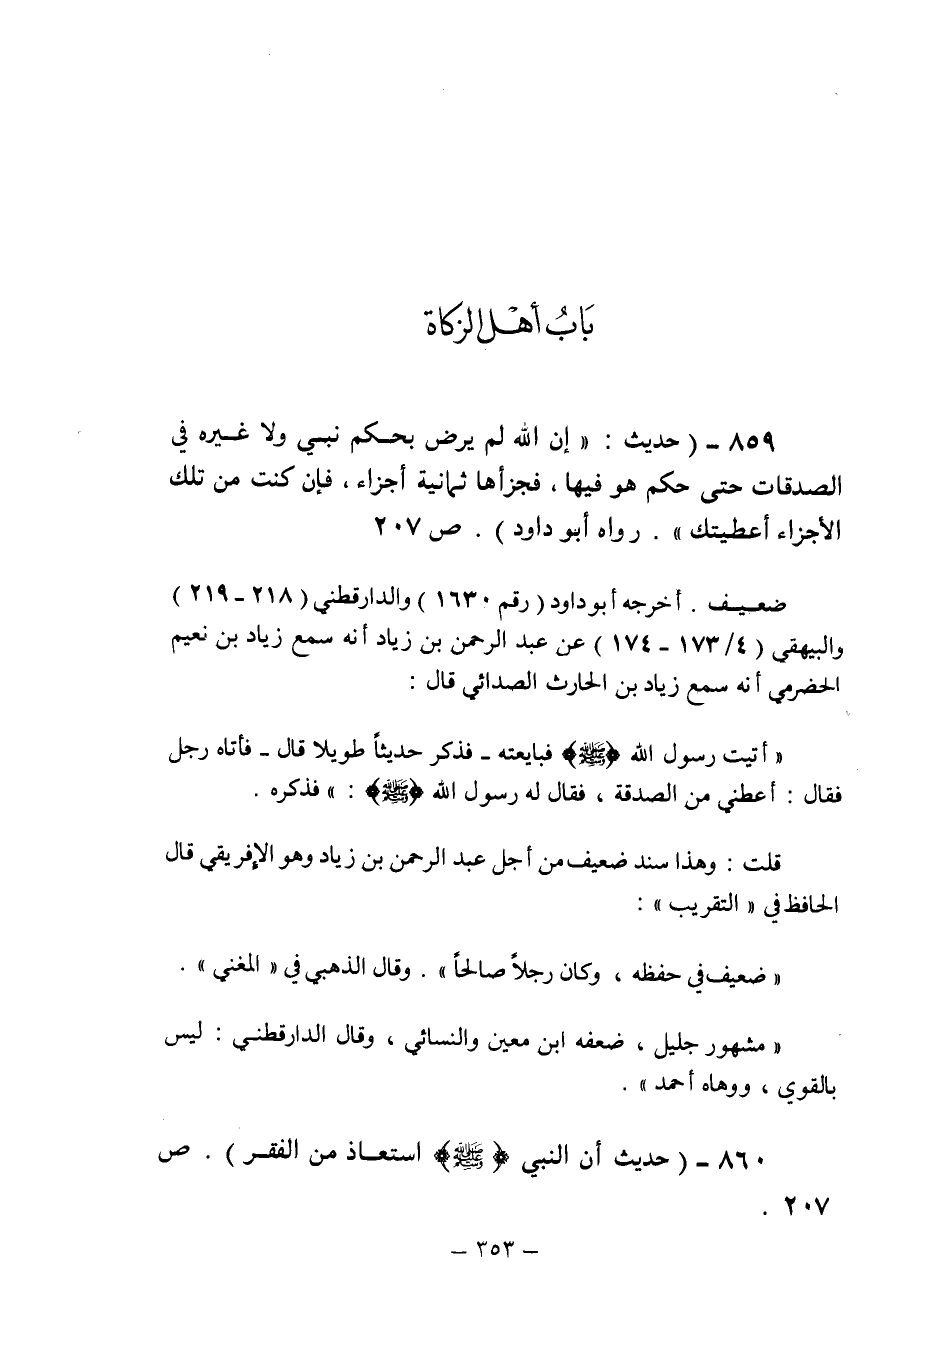 بَابُ أهْل الزكاة
٨٥٩ ـ ( حديث : « إن الله لم يرض بحكم نبي ولا غيره في
الصدقات حتى حكم هو فيها ، فجزأها ثمانية أجزاء ، فإن كنت من تلك
الأجزاء أعطيتك » . رواه أبو داود ) . ص ٢٠٧
ضعيف . أخرجه أبو داود ( رقم ١٦٣٠ ) والدارقطني ( ٢١٨ ـ ٢١٩ )
والبيهقي ( ٤/ ١٧٣ ـ ١٧٤ ) عن عبد الرحمن بن زياد أنه سمع زياد بن نعيم
الحضرمي أنه سمع زياد بن الحارث الصدائي قال :
« أتيت رسول الله ﴿ﷺ﴾ فبايعته ـ فذكر حديثاً طويلا قال ـ فأتاه رجل
فقال : أعطني من الصدقة ، فقال له رسول الله ﴿ﷺ﴾ : » فذكره .
قلت : وهذا سند ضعيف من أجل عبد الرحمن بن زياد وهو الإفريقي قال
الحافظ في « التقريب » :
« ضعيف في حفظه ، وكان رجلاً صالحاً » . وقال الذهبي في « المغني » .
« مشهور جليل ، ضعفه ابن معين والنسائي ، وقال الدارقطني : ليس
بالقوي ، ووهاه أحمد » .
٨٦٠ ـ ( حديث أن النبي ﴿ ﷺ﴾ استعاذ من الفقر ) . ص
٢٠٧ .
ـ ٣٥٣ ـ